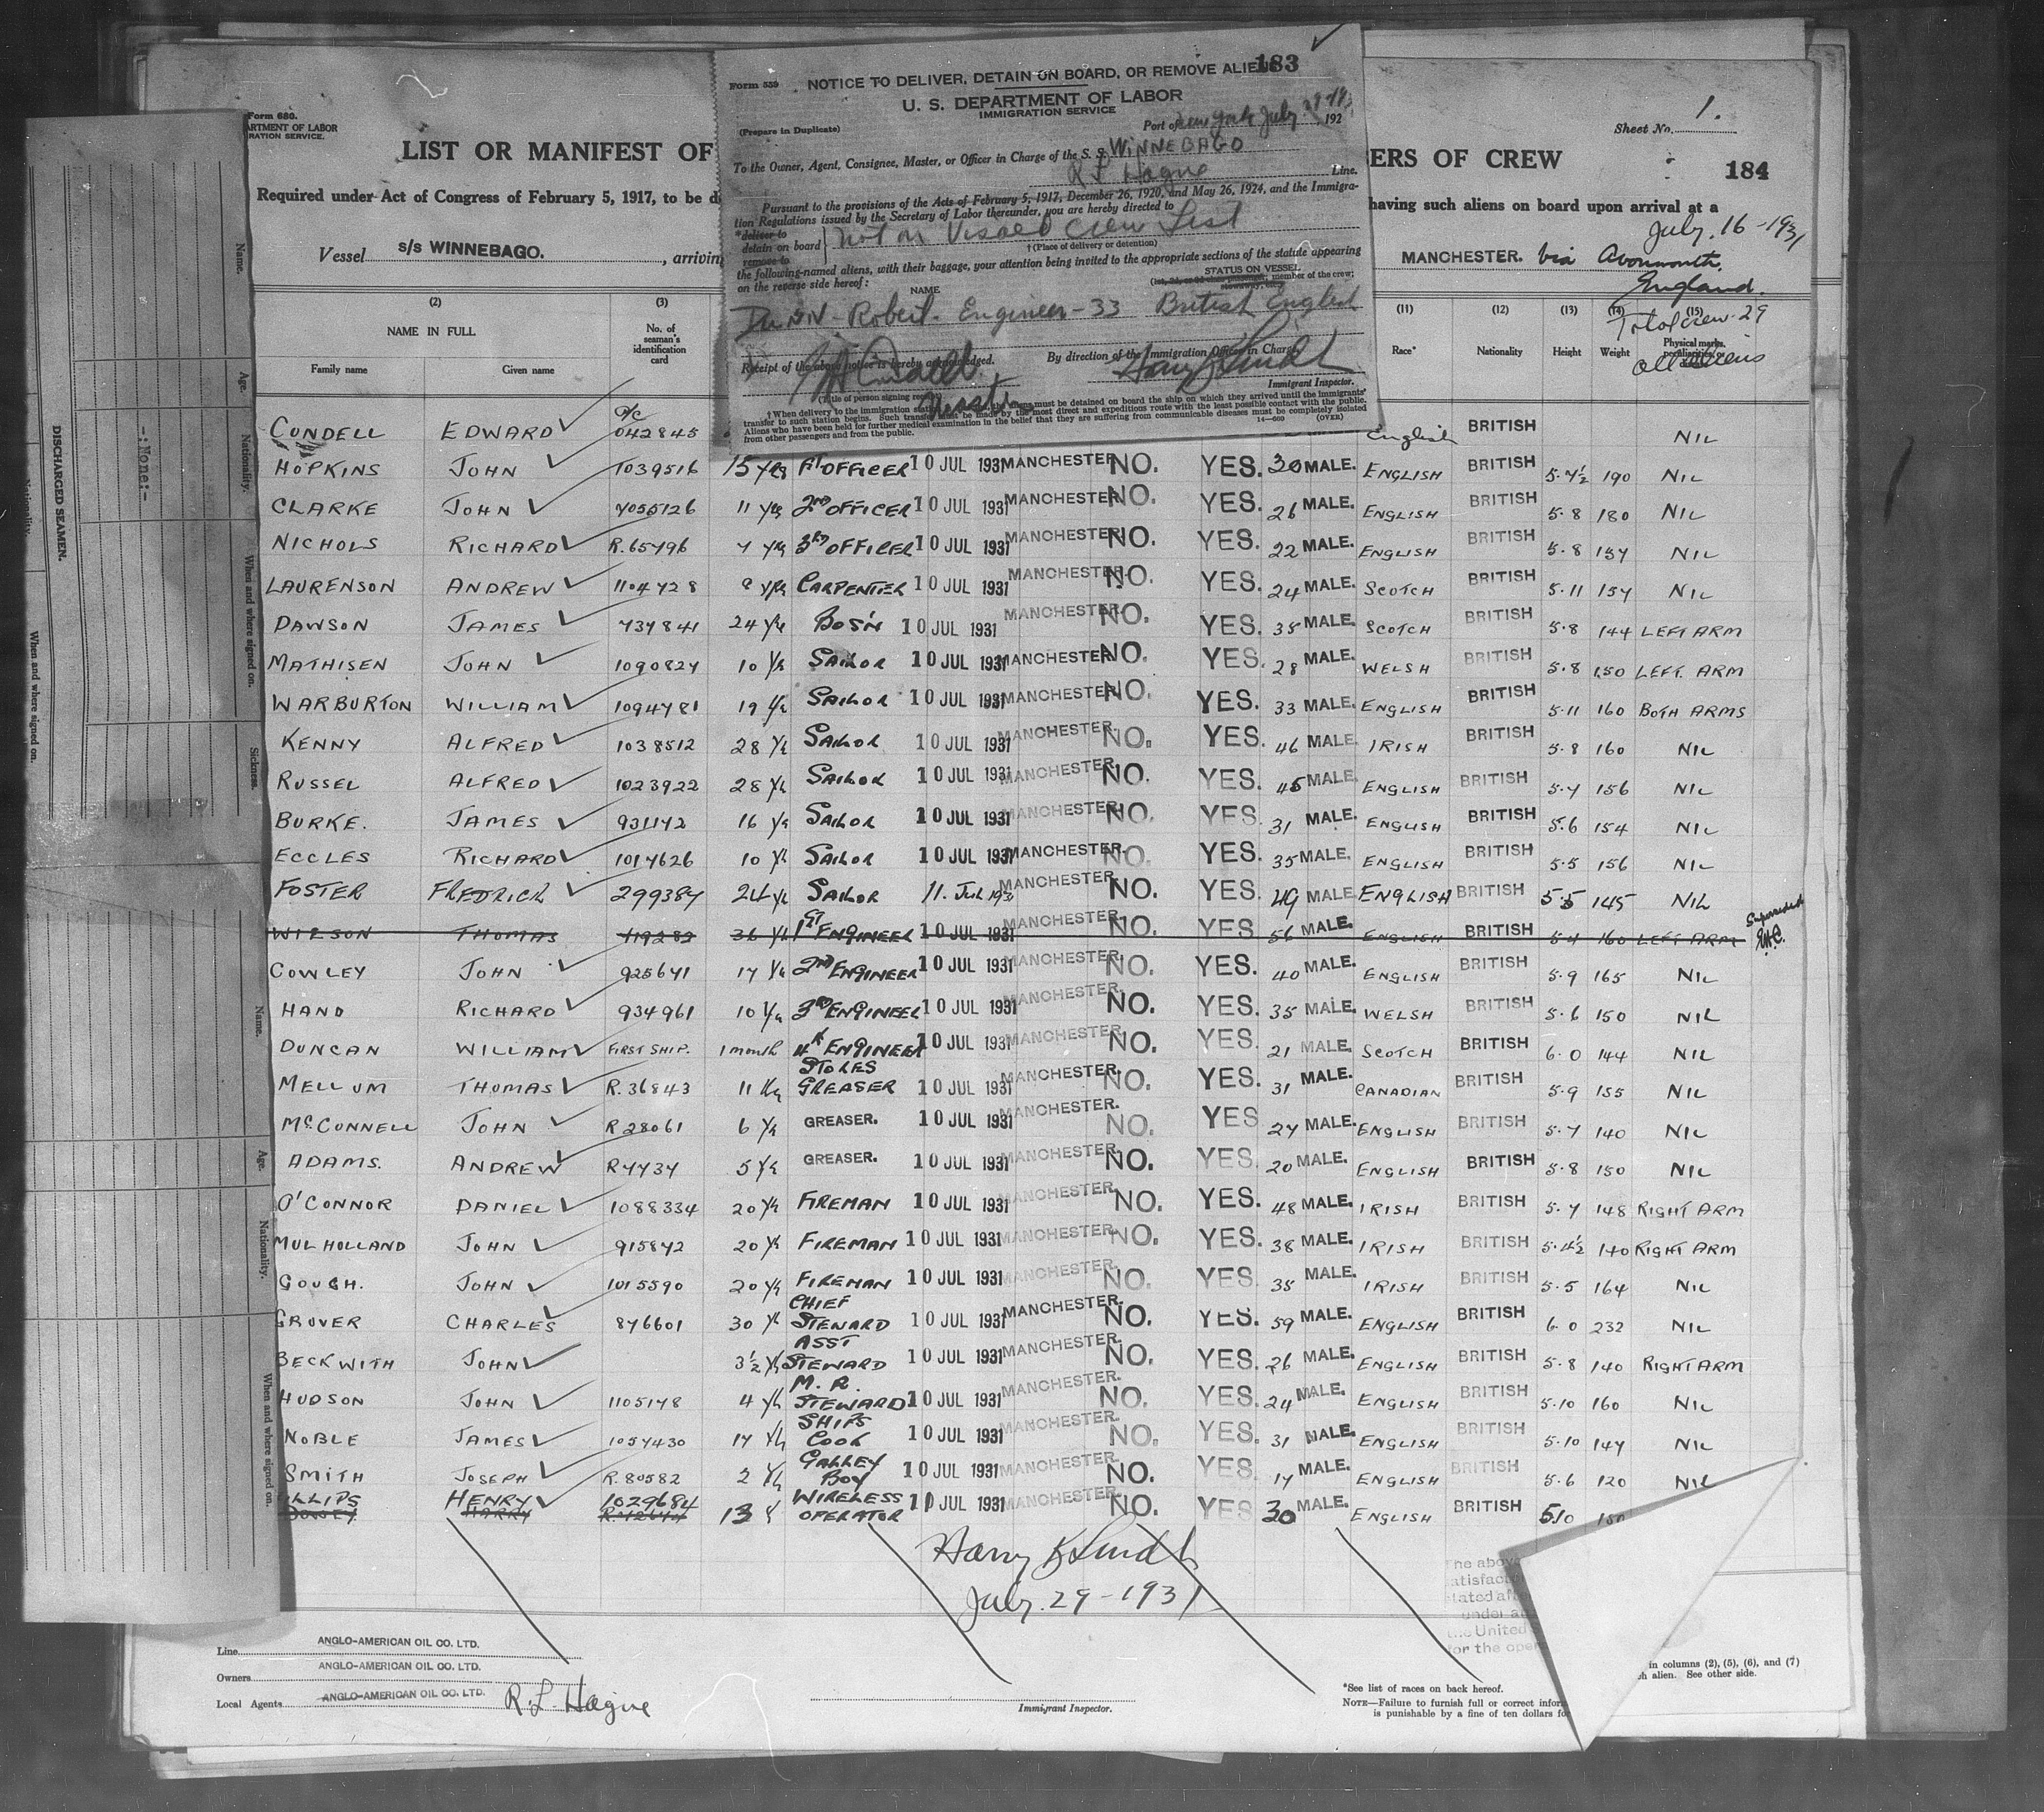 Form 559
NOTICE TO DELIVER, DETAIN ON BOARD, OR REMOVE ALIENS
183
U. S. DEPARTMENT OF LABOR
IMMIGRATION SERVICE
(Prepare in Duplicate)
Port of New York July 29 1931 192
To the Owner, Agent, Consignee, Master, or Officer in Charge of the S. S. WINNEBAGO
R L Hague Line.
Pursuant to the provisions of the Acts of February 5, 1917, December 26, 1920, and May 26, 1924, and the Immigra-
tion Regulations issued by the Secretary of Labor thereunder, you are hereby directed to
*deliver to
detain on board } Not on Visaed Crew List
remove to
†(Place of delivery or detention)
the following-named aliens, with their baggage, your attention being invited to the appropriate sections of the statute appearing
on the reverse side hereof:
NAME
STATUS ON VESSEL
member of the crew;
DUNN - Robert. Engineer - 33 British English
Receipt of the above notice is hereby acknowledged.
By direction of the Immigration Officer in Charge,
Harry K Lindh
Immigrant Inspector.
(Title of person signing receipt)
Master
†When delivery to the immigration station aliens must be detained on board the ship on which they arrived until the immigrants'
transfer to such station begins. Such transfer must be made by the most direct and expeditious route with the least possible contact with the public.
Aliens who have been held for further medical examination in the belief that they are suffering from communicable diseases must be completely isolated
from other passengers and from the public.
14—600 (OVER)
Form 680.
ARTMENT OF LABOR
RATION SERVICE.
Sheet No. 1.
184
LIST OR MANIFEST OF
BERS OF CREW
Required under Act of Congress of February 5, 1917, to be d
having such aliens on board upon arrival at a
July. 16 - 1931
Vessel s/s WINNEBAGO. , arriving
MANCHESTER. via Avonmouth,
England.
Total crew 29
all aliens
(2) (3) (11) (12) (13) (14) (15)
NAME IN FULL No. of seaman's identification card Race* Nationality Height Weight Physical marks,
Family name Given name
CONDELL EDWARD O/C 042845 English BRITISH NIL
HOPKINS JOHN 1039516 15 yrs 1st OFFICER 10 JUL 1931 MANCHESTER. NO. YES. 30 MALE. ENGLISH BRITISH 5.7½ 190 NIL
CLARKE JOHN 7055126 11 yrs 2ND OFFICER 10 JUL 1931 MANCHESTER. NO. YES. 26 MALE. ENGLISH BRITISH 5.8 180 NIL
NICHOLS RICHARD R.65796 7 yrs 3RD OFFICER 10 JUL 1931 MANCHESTER. NO. YES. 22 MALE. ENGLISH BRITISH 5.8 157 NIL
LAURENSON ANDREW 1104728 9 yrs CARPENTER 10 JUL 1931 MANCHESTER. NO. YES. 24 MALE. SCOTCH BRITISH 5.11 157 NIL
DAWSON JAMES 737841 24 yrs BOS'N 10 JUL 1931 MANCHESTER. NO. YES. 35 MALE. SCOTCH BRITISH 5.8 144 LEFT ARM
MATHISEN JOHN 1090827 10 yrs SAILOR 10 JUL 1931 MANCHESTER. NO. YES. 28 MALE. WELSH BRITISH 5.8 150 LEFT. ARM
WARBURTON WILLIAM 1094781 19 yrs SAILOR 10 JUL 1931 MANCHESTER. NO. YES. 33 MALE. ENGLISH BRITISH 5.11 160 BOTH ARMS
KENNY ALFRED 1038512 28 yrs SAILOR 10 JUL 1931 MANCHESTER. NO. YES. 46 MALE. IRISH BRITISH 5.8 160 NIL
RUSSEL ALFRED 1023922 28 yrs SAILOR 10 JUL 1931 MANCHESTER. NO. YES. 45 MALE. ENGLISH BRITISH 5.7 156 NIL
BURKE. JAMES 931142 16 yrs SAILOR 10 JUL 1931 MANCHESTER. NO. YES. 31 MALE. ENGLISH BRITISH 5.6 154 NIL
ECCLES RICHARD 1017626 10 yrs SAILOR 10 JUL 1931 MANCHESTER. NO. YES. 35 MALE. ENGLISH BRITISH 5.5 156 NIL
FOSTER FREDRICK 299387 24 yrs SAILOR 11. Jul 1931 MANCHESTER. NO. YES. 49 MALE. ENGLISH BRITISH 5.5 145 NIL
WILSON THOMAS 719282 36 yrs 1ST ENGINEER 10 JUL 1931 MANCHESTER. NO. YES 56 MALE. ENGLISH BRITISH 5.4 160 LEFT ARM Superseded
COWLEY JOHN 925671 17 yrs 2ND ENGINEER 10 JUL 1931 MANCHESTER. NO. YES. 40 MALE. ENGLISH BRITISH 5.9 165 NIL
HAND RICHARD 934961 10 yrs 3RD ENGINEER 10 JUL 1931 MANCHESTER. NO. YES. 35 MALE. WELSH BRITISH 5.6 150 NIL
DUNCAN WILLIAM FIRST SHIP. 1 month 4th ENGINEER 10 JUL 1931 MANCHESTER. NO. YES. 21 MALE. SCOTCH BRITISH 6.0 144 NIL
MELLUM THOMAS R.36843 11 yrs STORES GREASER 10 JUL 1931 MANCHESTER. NO. YES. 31 MALE. CANADIAN BRITISH 5.9 155 NIL
McCONNELL JOHN R 28061 6 yrs GREASER. 10 JUL 1931 MANCHESTER. NO. YES 27 MALE. ENGLISH BRITISH 5.7 140 NIL
ADAMS. ANDREW R7737 5 yrs GREASER. 10 JUL 1931 MANCHESTER. NO. YES. 20 MALE. ENGLISH BRITISH 5.8 150 NIL
O'CONNOR DANIEL 1088334 20 yrs FIREMAN 10 JUL 1931 MANCHESTER. NO. YES. 48 MALE. IRISH BRITISH 5.7 148 RIGHT ARM
MULHOLLAND JOHN 915872 20 yrs FIREMAN 10 JUL 1931 MANCHESTER. NO. YES. 38 MALE. IRISH BRITISH 5.4½ 140 RIGHT ARM
GOUGH. JOHN 1015590 20 yrs FIREMAN 10 JUL 1931 MANCHESTER. NO. YES. 35 MALE. IRISH BRITISH 5.5 164 NIL
GROVER CHARLES 876601 30 yrs CHIEF STEWARD 10 JUL 1931 MANCHESTER. NO. YES. 59 MALE. ENGLISH BRITISH 6.0 232 NIL
BECKWITH JOHN 3½ yrs ASST STEWARD 10 JUL 1931 MANCHESTER. NO. YES. 26 MALE. ENGLISH BRITISH 5.8 140 RIGHT ARM
HUDSON JOHN 1105178 4 yrs M. R. STEWARD 10 JUL 1931 MANCHESTER. NO. YES. 24 MALE. ENGLISH BRITISH 5.10 160 NIL
NOBLE JAMES 1057430 17 yrs SHIPS COOK 10 JUL 1931 MANCHESTER. NO. YES. 31 MALE. ENGLISH BRITISH 5.10 147 NIL
SMITH JOSEPH R.80582 2 yrs GALLEY BOY 10 JUL 1931 MANCHESTER. NO. YES. 17 MALE. ENGLISH BRITISH 5.6 120 NIL
ILLIPS HENRY 1029684 13 y WIRELESS OPERATOR 11 JUL 1931 MANCHESTER. NO. YES 30 MALE. ENGLISH BRITISH 5.10 150
HARRY
Harry K Lindh
July. 29 - 1931
The above
atisfact
lated a
under a
the United S
for the oper
Line ANGLO-AMERICAN OIL CO. LTD.
Owners ANGLO-AMERICAN OIL CO. LTD.
Local Agents ANGLO-AMERICAN OIL CO. LTD. R. L. Hague
Immigrant Inspector.
*See list of races on back hereof.
NOTE—Failure to furnish full or correct infor
is punishable by a fine of ten dollars fo
in columns (2), (5), (6), and (7)
h alien. See other side.
DISCHARGED SEAMEN.
Name. Age. Nationality. When and where signed on. Sickness.
-:None:-
Nationality. When and where signed on.
Name. Age. Nationality. When and where signed on.